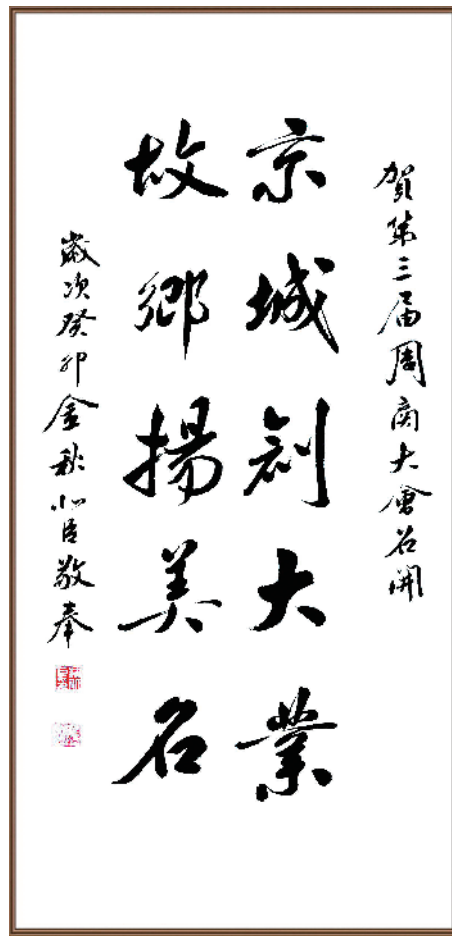 賀第三届周商大會召開
京城創大業
故鄉揚美名
歲次癸卯金秋敬奉